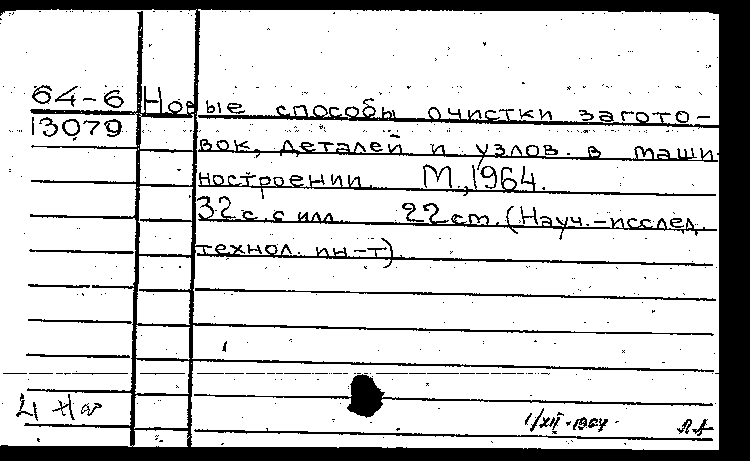 64-6 Новые способы очистки загото-
13079 вок, деталей и узлов в маши
ностроении М., 1964.
32 с. с илл. 22 cm. (Науч.-исслед.
технол. ин-т)
1/XII-1964